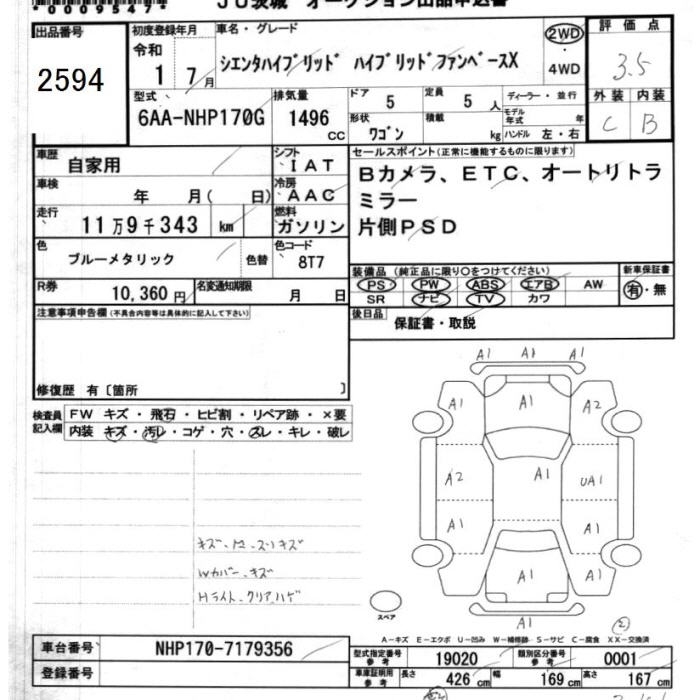 *0009547*
JU茨城 オークション出品申込書
出品番号
2594
初度登録年月
令和
1 7月
車名・グレード
シエンタハイブリッド ハイブリッドファンベースX
2WD
4WD
評価点
3.5
外装 内装
C B
型式
6AA-NHP170G
排気量
1496
CC
ドア 5
形状 ワゴン
定員 5 人
積載 kg
ディーラー・並行
モデル年式 年
ハンドル 左・右
車歴 自家用
シフト IAT
車検 年 月( 日)
冷房 AAC
走行 11万9千343 km
燃料 ガソリン
色 ブルーメタリック 色替
色コード 8T7
R券 10,360円
名変通知期限 月 日
セールスポイント(正常に機能するものに限ります)
Bカメラ、ETC、オートリトラ
ミラー
片側PSD
装備品 (純正品に限り○をつけてください)
PS PW ABS エアB AW
SR ナビ TV カワ
新車保証書
有・無
後日品 保証書・取説
注意事項申告欄(不具合内容等は具体的に記入して下さい)
修復歴 有〔箇所 〕
検査員記入欄
FW キズ・飛石・ヒビ割・リペア跡・×要
内装 キズ・汚レ・コゲ・穴・スレ・キレ・破レ
Wカバー、キズ
Hライト、クリアハゲ
A1 A1 A1
A1 A1 A2
A2 A1 UA1
A1 A1
A1 A1 A1
スペア
A-キズ E-エクボ U-凹み W-補修跡 S-サビ C-腐食 XX-交換済
車台番号 NHP170-7179356
登録番号
型式指定番号 参考 19020
類別区分番号 参考 0001
車庫証明用 参考
長さ 426 cm
幅 169 cm
高さ 167 cm